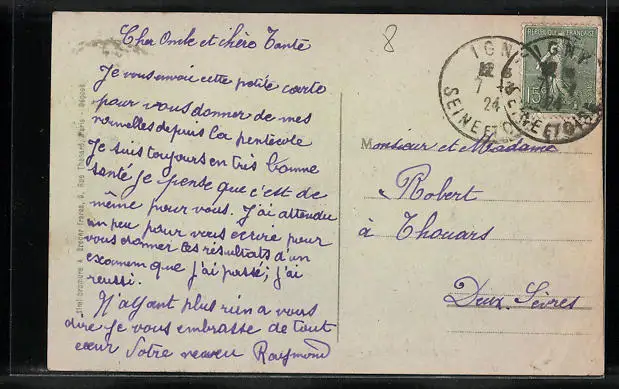 Cher Oncle et chère Tante
8
Je vous envoie cette petite carte
pour vous donner de mes
nouvelles depuis la pentecote
Je suis toujours en très bonne
santé je pense que c'est de
même pour vous. J'ai attendu
un peu pour vous ecrire pour
vous donner les résultats d'un
examem que j'ai passé; j'ai
reussi.
N'ayant plus rien a vous
dire je vous embrasse de tout
cœur Votre neveu Raymond
IGNY
7
24
SEINE ET OISE
REPUBLIQUE FRANÇAISE
15
Monsieur et Madame
Robert
à Thouars
Deux-Sèvres
A. Breger Freres, 9, Rue Thenard, Paris - Déposé